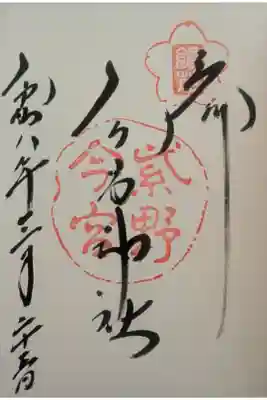 奉拝
今宮神社
紫野
今宮
令和八年 月二十 日